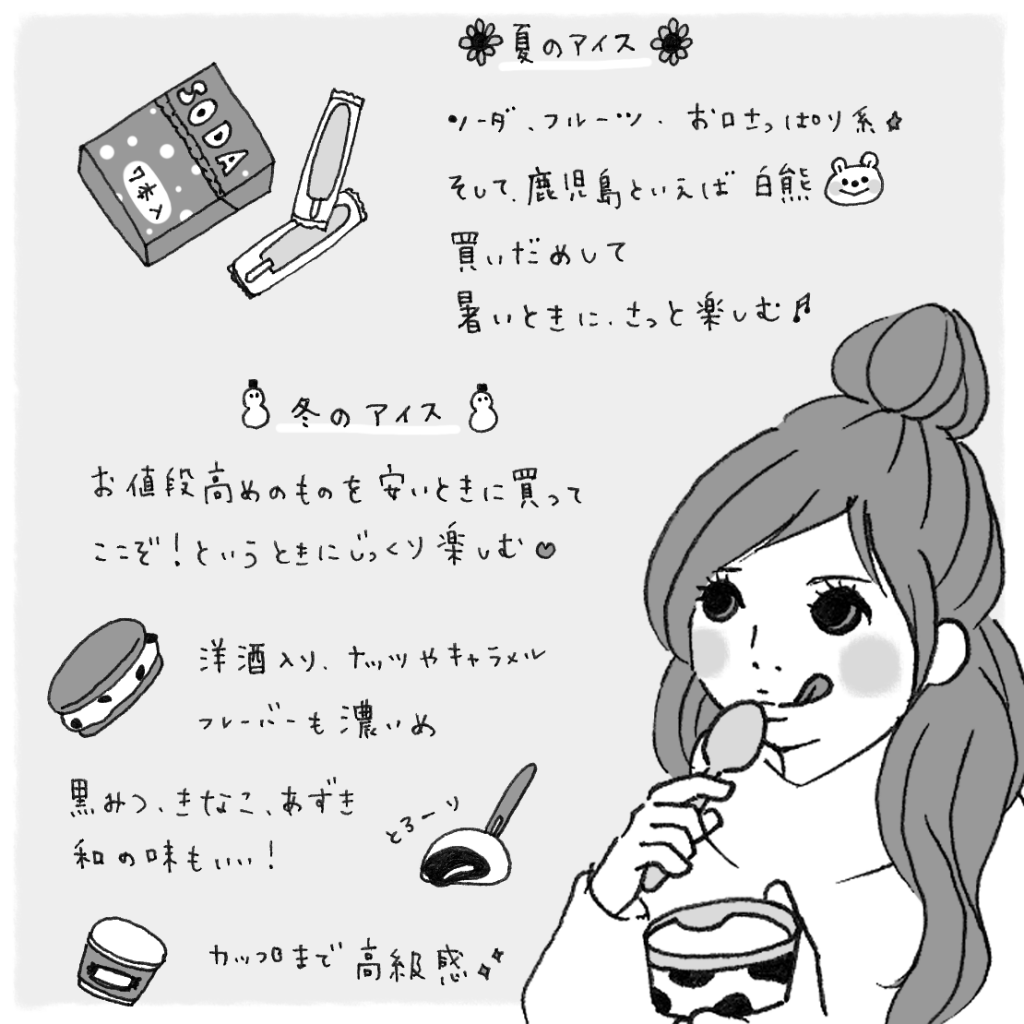 夏のアイス
SODA
7本入
ソーダ、フルーツ、お口さっぱり系
そして、鹿児島といえば 白熊
買いだめして
暑いときに、さっと楽しむ♬
冬のアイス
お値段高めのものを安いときに買って
ここぞ!というときにじっくり楽しむ♥
洋酒入り、ナッツやキャラメル
フレーバーも濃いめ
黒みつ、きなこ、あずき
和の味もいい!
とろーり
カップまで高級感